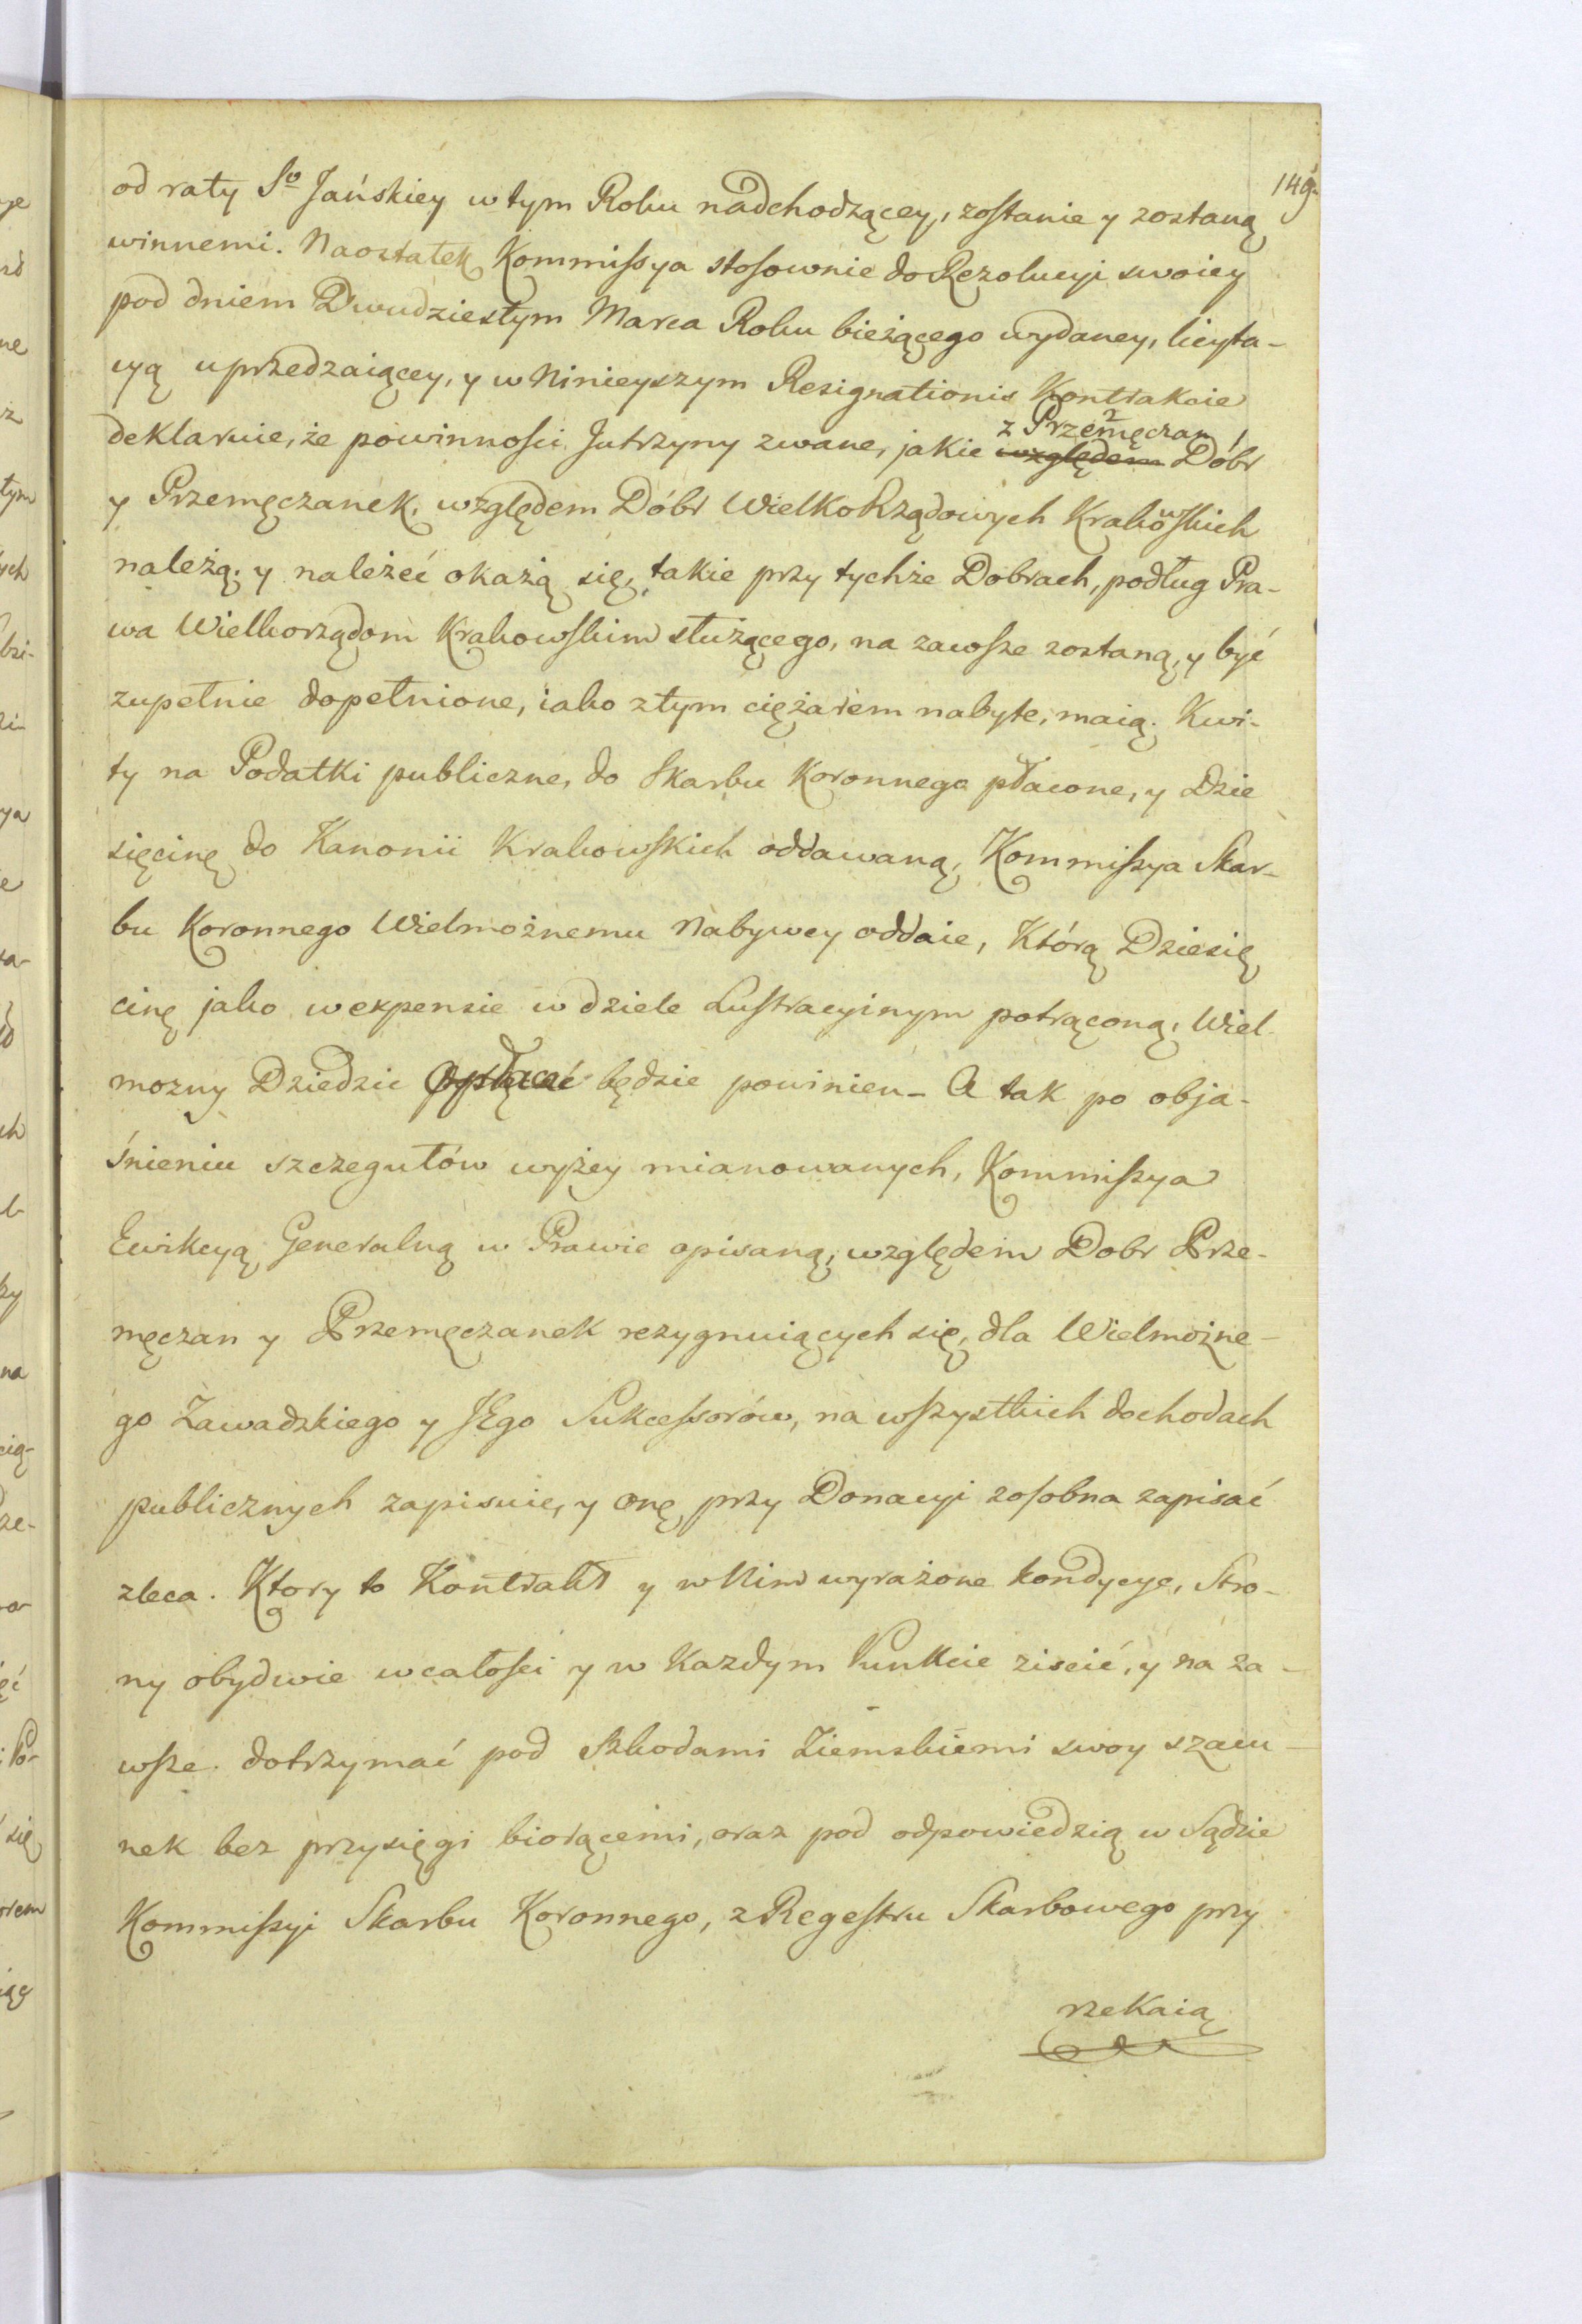 149.
od raty So Jańskiey w tym Roku nadchodzącey, zostanie y zostaną
winnemi. Naostatek Kommissya stosownie do Rezolucyi swoiey
pod dniem Dwudziestym Marca Roku bieżącego wydaney, licyta-
cyą uprzedzaiącey, y w Ninieyszym Resignationis Kontrakcie
z Przemęczan
deklaruie, że powinności Jutrzyny zwane, jakie względem Dóbr
y Przemęczanek, względem Dóbr WielkoRządowych Krakowskich
należą, y należeć okażą się, takie przy tychże Dobrach, podług Pra-
wa Wielkorządom Krakowskim służącego, na zawsze zostaną, y być
zupełnie dopełnione, iako z tym ciężarem nabyte, maią. Kwi-
ty na Podatki publiczne, do Skarbu Koronnego płacone, y Dzie
sięcinę do Kanonii Krakowskich oddawaną, Kommissya Skar-
bu Koronnego Wielmożnemu Nabywcy oddaie, Którą Dziesię
cinę jako w expensie w dziele Lustracyinym potrąconą, Wiel-
możny Dziedzic opłacać będzie powinien_ A tak po obja-
śnieniu szczegułów wyżey mianowanych, Kommissya
Ewikcyą Generalną w Prawie opisaną, względem Dobr Prze-
męczan y Przemęczanek rezygnuiących się, dla Wielmożne-
go Zawadzkiego y JEgo Sukcessorów, na wszystkich dochodach
publicznych zapisuie, y onę przy Donacyi zosobna zapisać
zleca. Ktory to Kontrakt y w Nim wyrażone kondycye, Stro-
ny obydwie w całości y w Każdym Punkcie ziscić, y na za-
wsze dotrzymać pod Szkodami Ziemskiemi swoy szacu-
nek bez przysięgi biorącemi, oraz pod odpowiedzią w Sądzie
Kommissyi Skarbu Koronnego, z Regestru Skarbowego przy
rzekaią